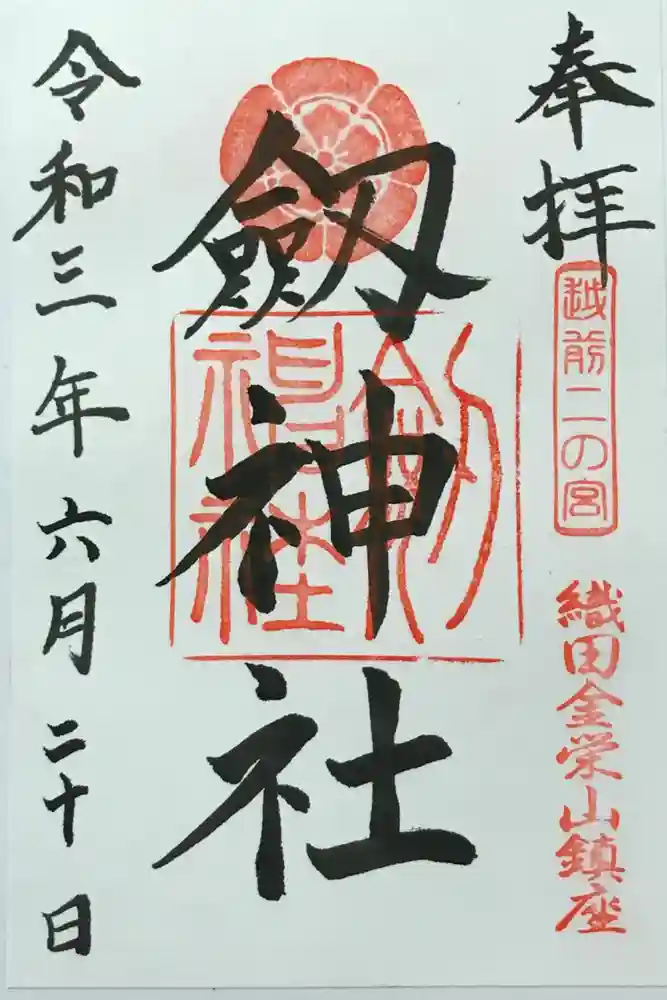 奉拝
越前二の宮
織田金栄山鎮座
劔神社
令和三年六月二十日